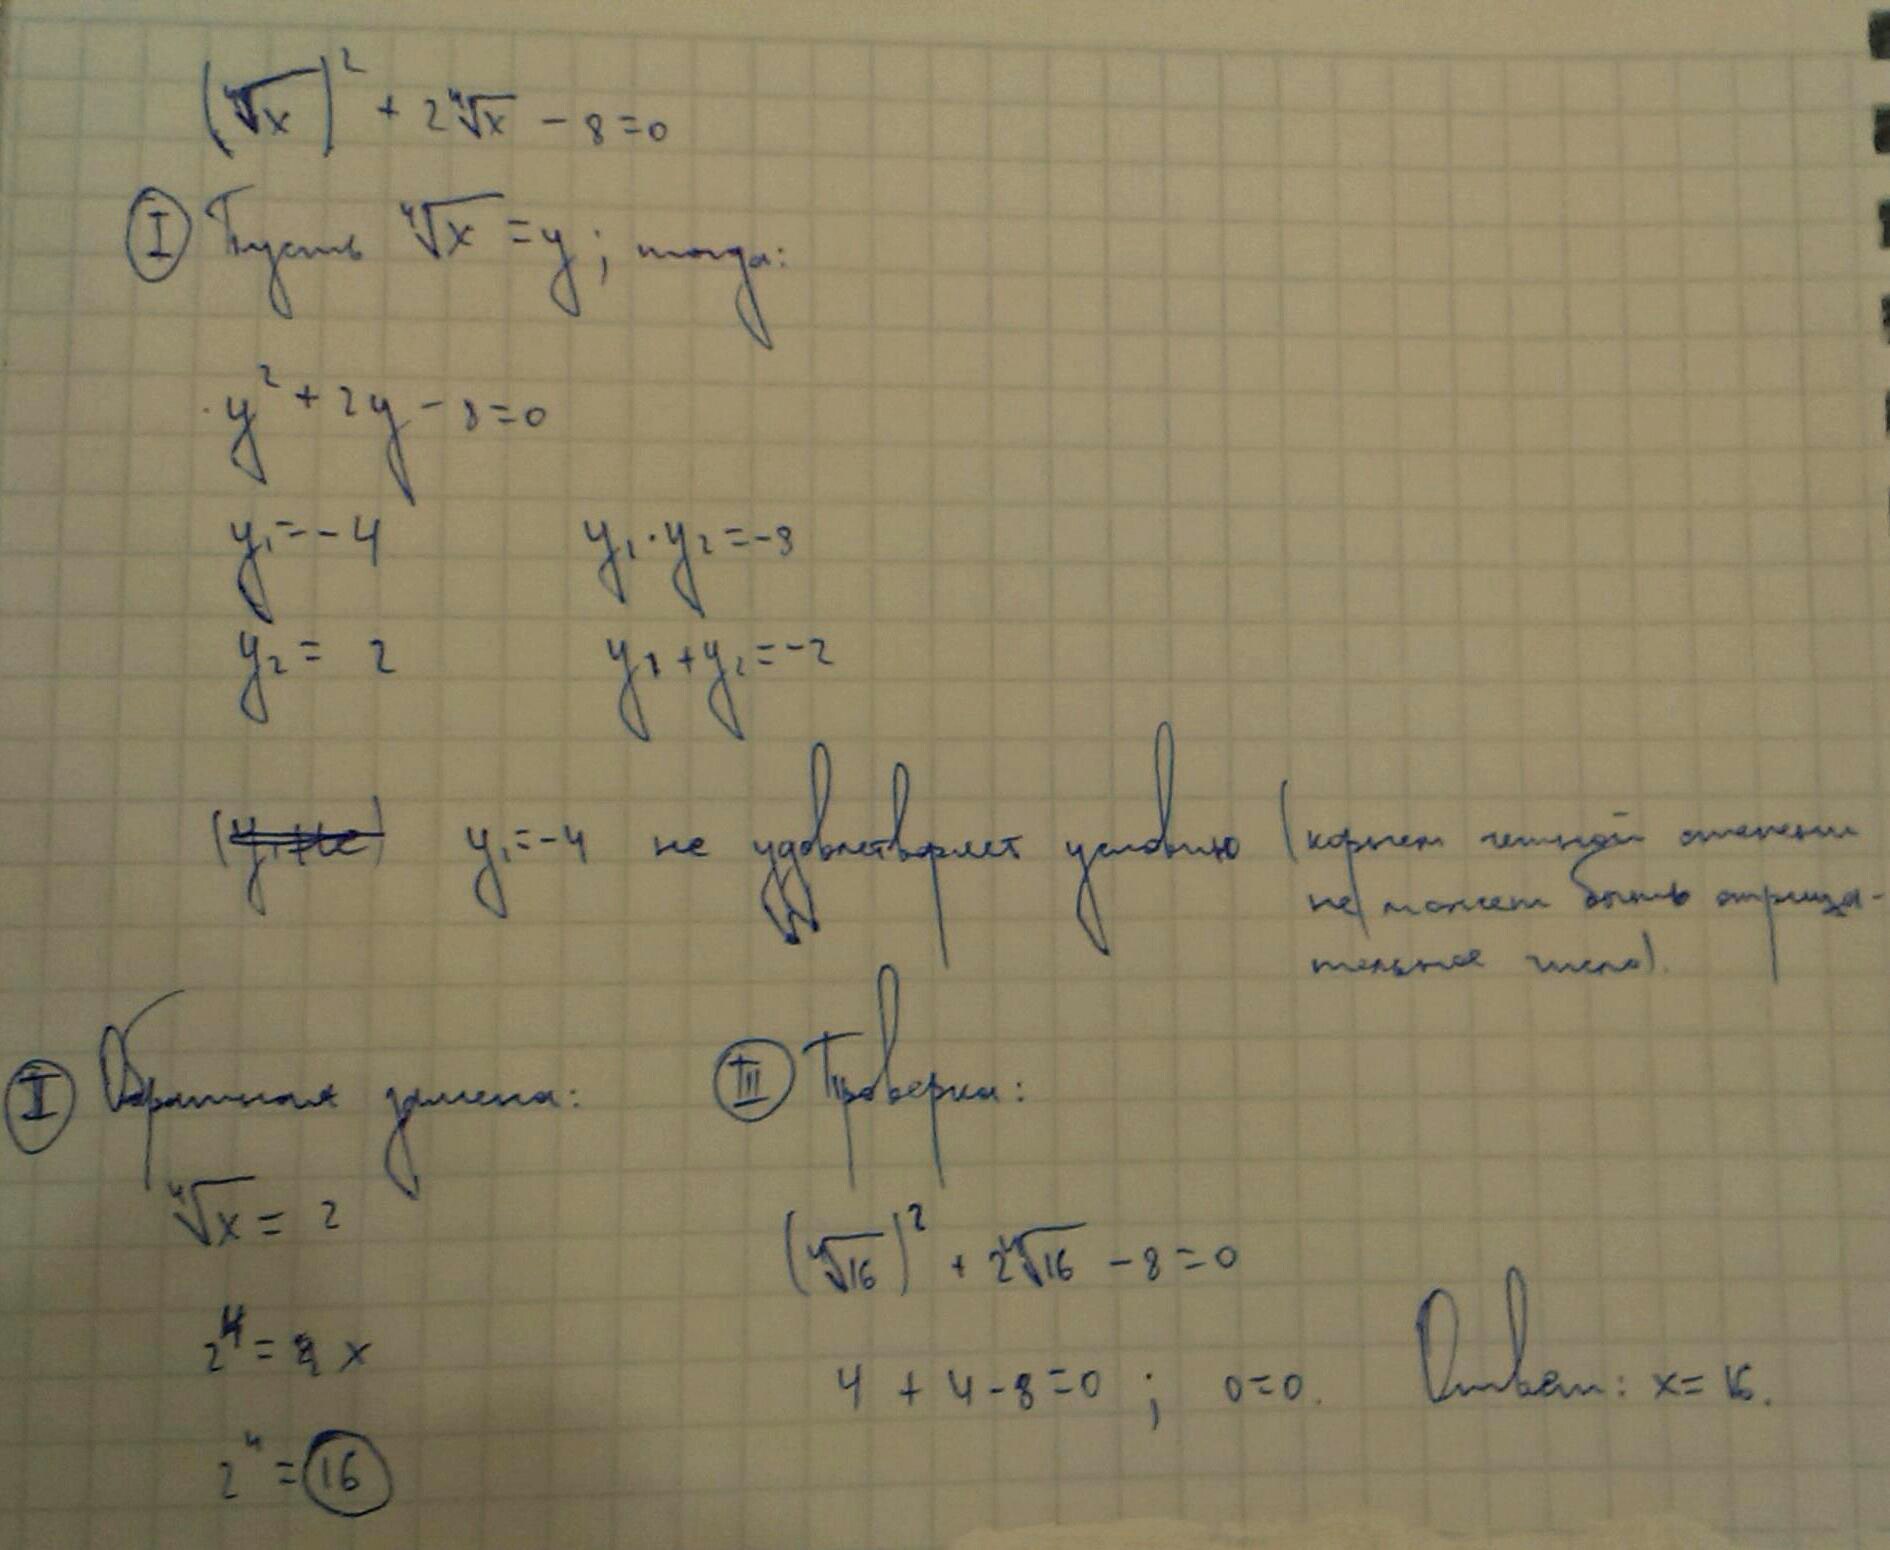 (⁴√x)² + 2⁴√x - 8 = 0
I Пусть ⁴√x = y; тогда:
y² + 2y - 8 = 0
y₁ = -4 y₁ · y₂ = -8
y₂ = 2 y₁ + y₂ = -2
y₁ = -4 не удовлетворяет условию (корнем четной степени
не может быть отрица-
тельное число).
II Обратная замена: III Проверка:
⁴√x = 2
(⁴√16)² + 2⁴√16 - 8 = 0
2⁴ = x
4 + 4 - 8 = 0 ; 0 = 0. Ответ: x = 16.
2⁴ = 16